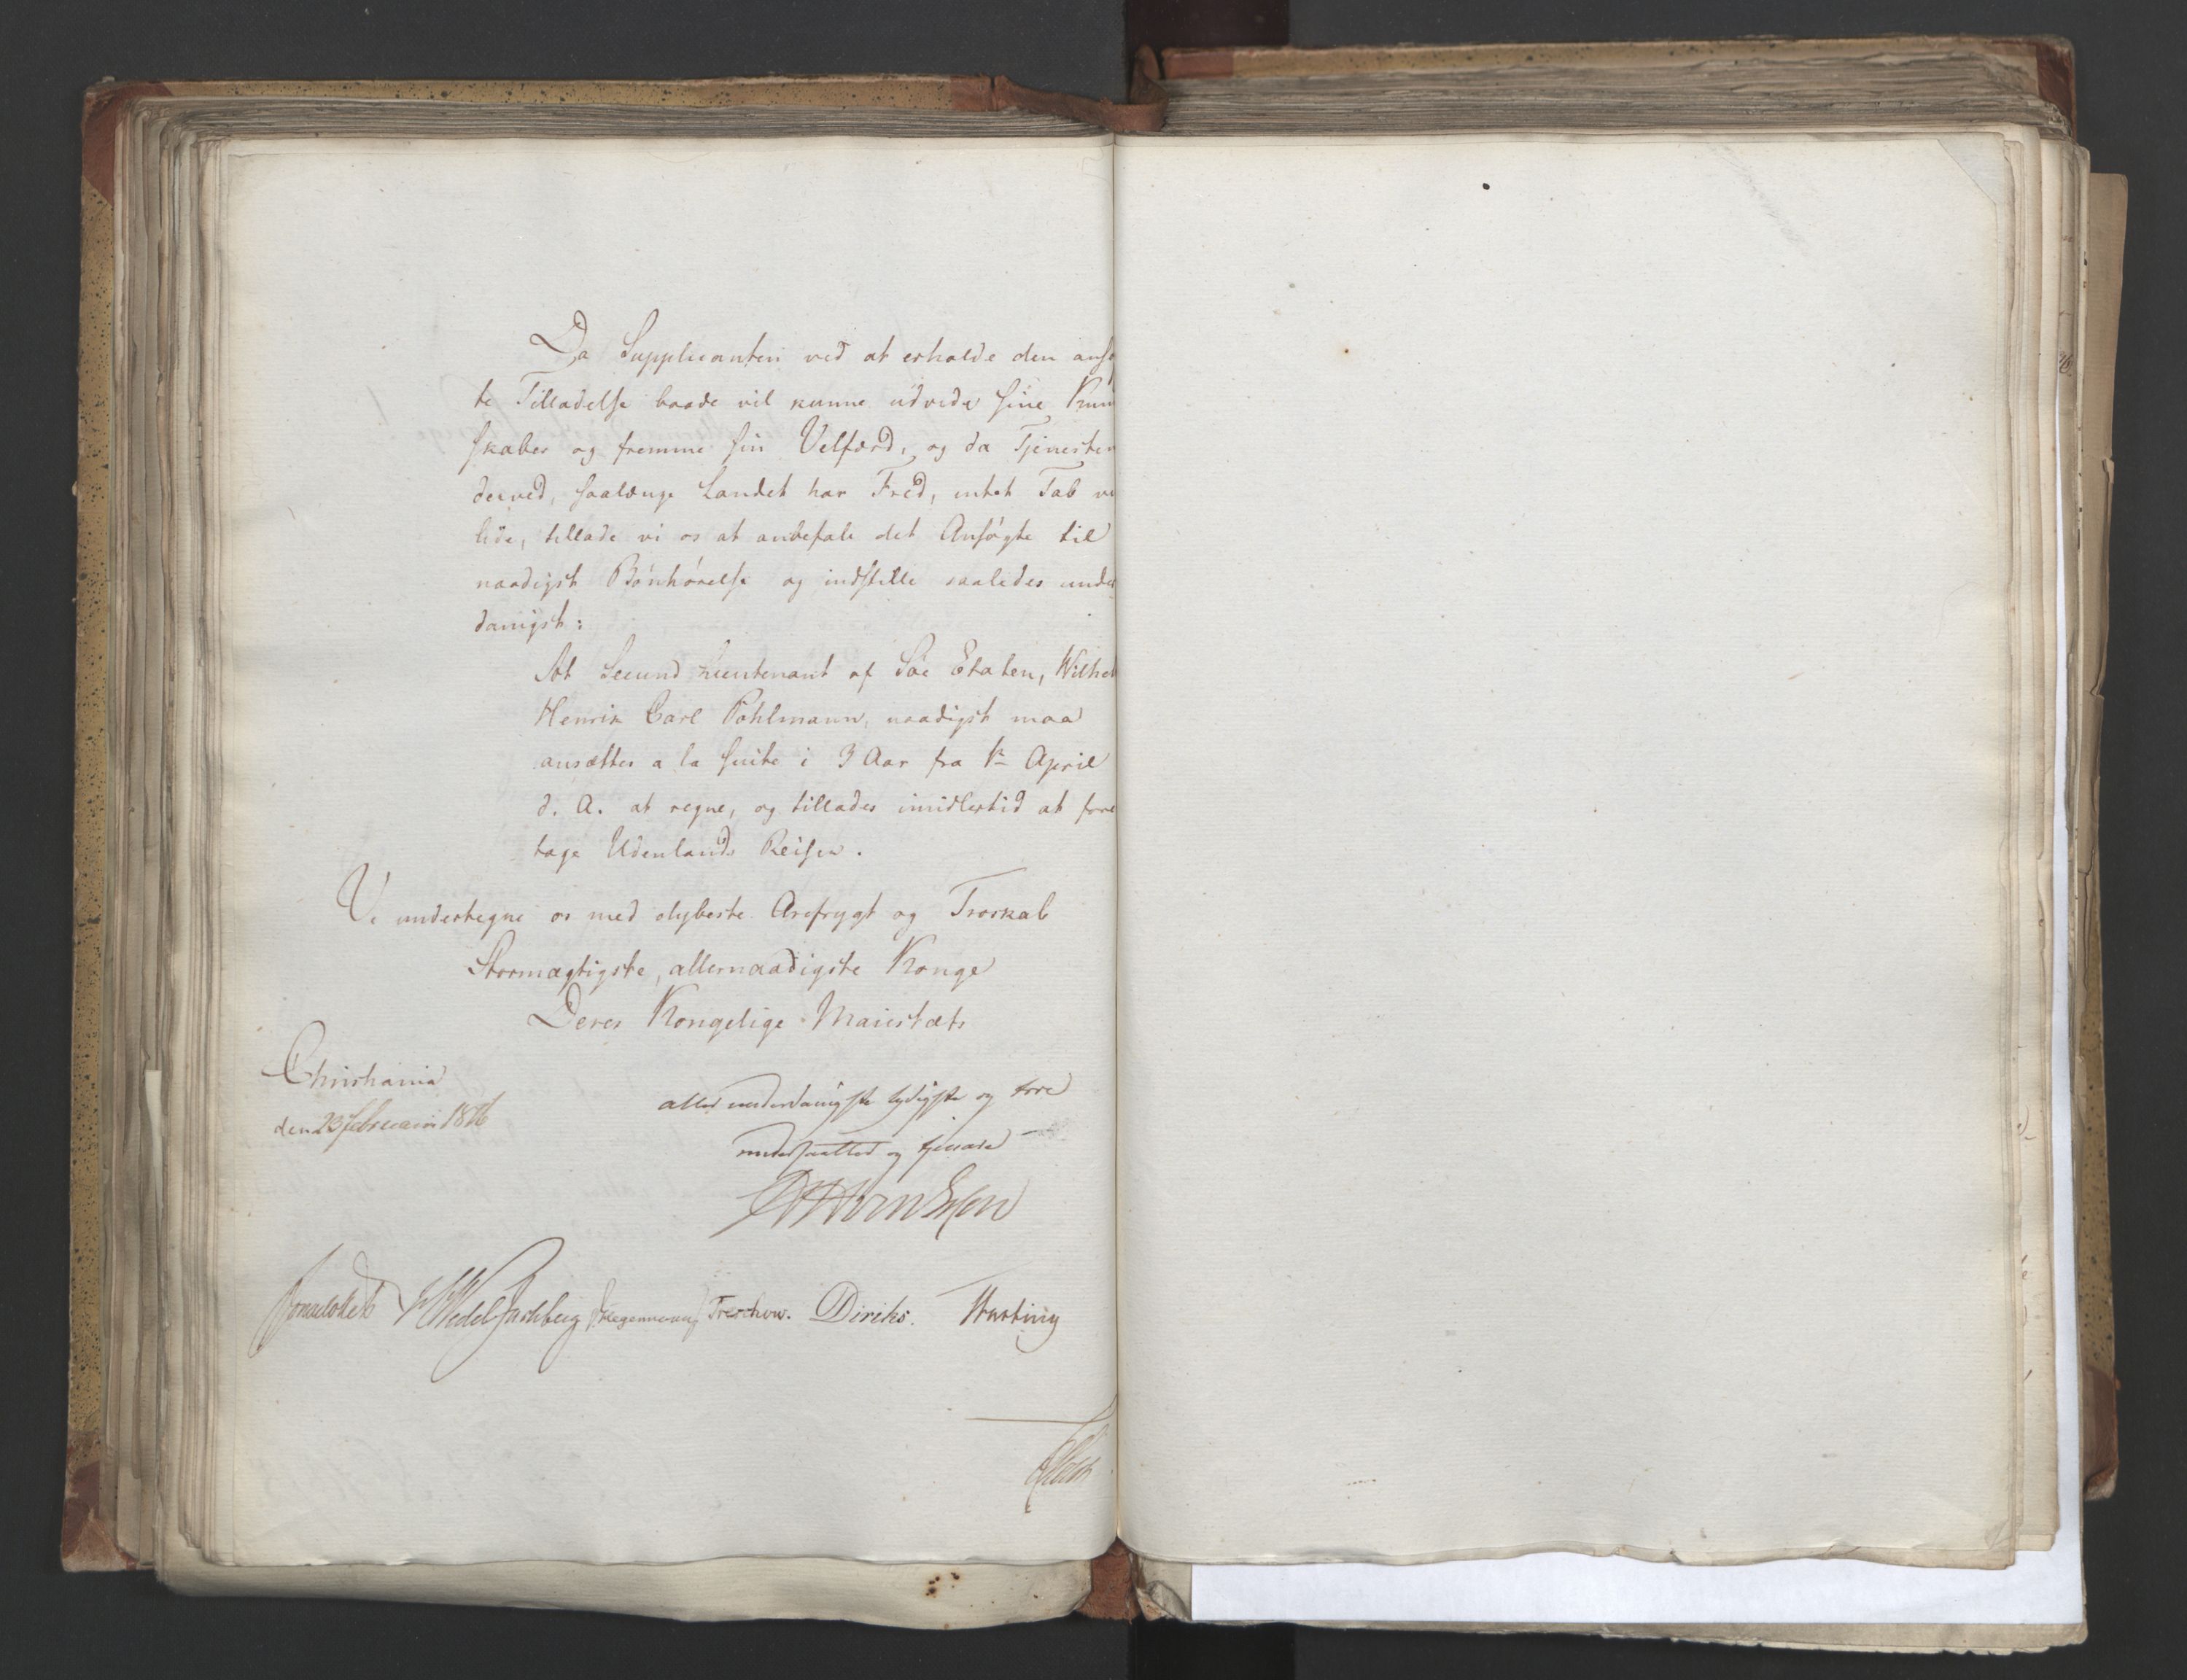 Da Supplicanten ved at erholde den ansø
te Tilladelse baade vil kunne udvide sine Kun
skaber og fremme sin Velfærd, og da Tjenesten
derved, saalænge Landet har Fred, intet Tab vi
lide, tillade vi os at anbefale det Ansøgte til
naadigst Bönhörelse og indstille saaledes under
danigst:
At Secund Lieutenant af Søe Etaten, Wilhel
Henrik Carl Pohlmann, naadigst maa
ansættes a la suite i 3 Aar fra 1ste April
d. A. at regne, og tillades imidlertid at fore
tage Udenlands Reiser.
Vi undertegne os med dybeste Ærefrygt og Troskab
Stormægtigste, allernaadigste Konge
Deres Kongelige Maiestæts
Christiania
den 23 februarii 1816
allerunderdanigste lydigste og troe
undersaatter og tjenere
Wedel Jarlsberg Hegermann Treschow. Diriks.